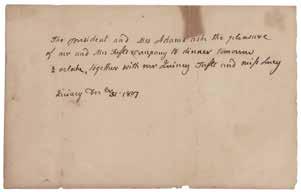 The president and Mrs Adams ask the pleasure
of mr and Mrs Tufts company to dinner tomorrow
2 oclock, together with mr Quincy Tufts and miss Lucy
Quincy 1807